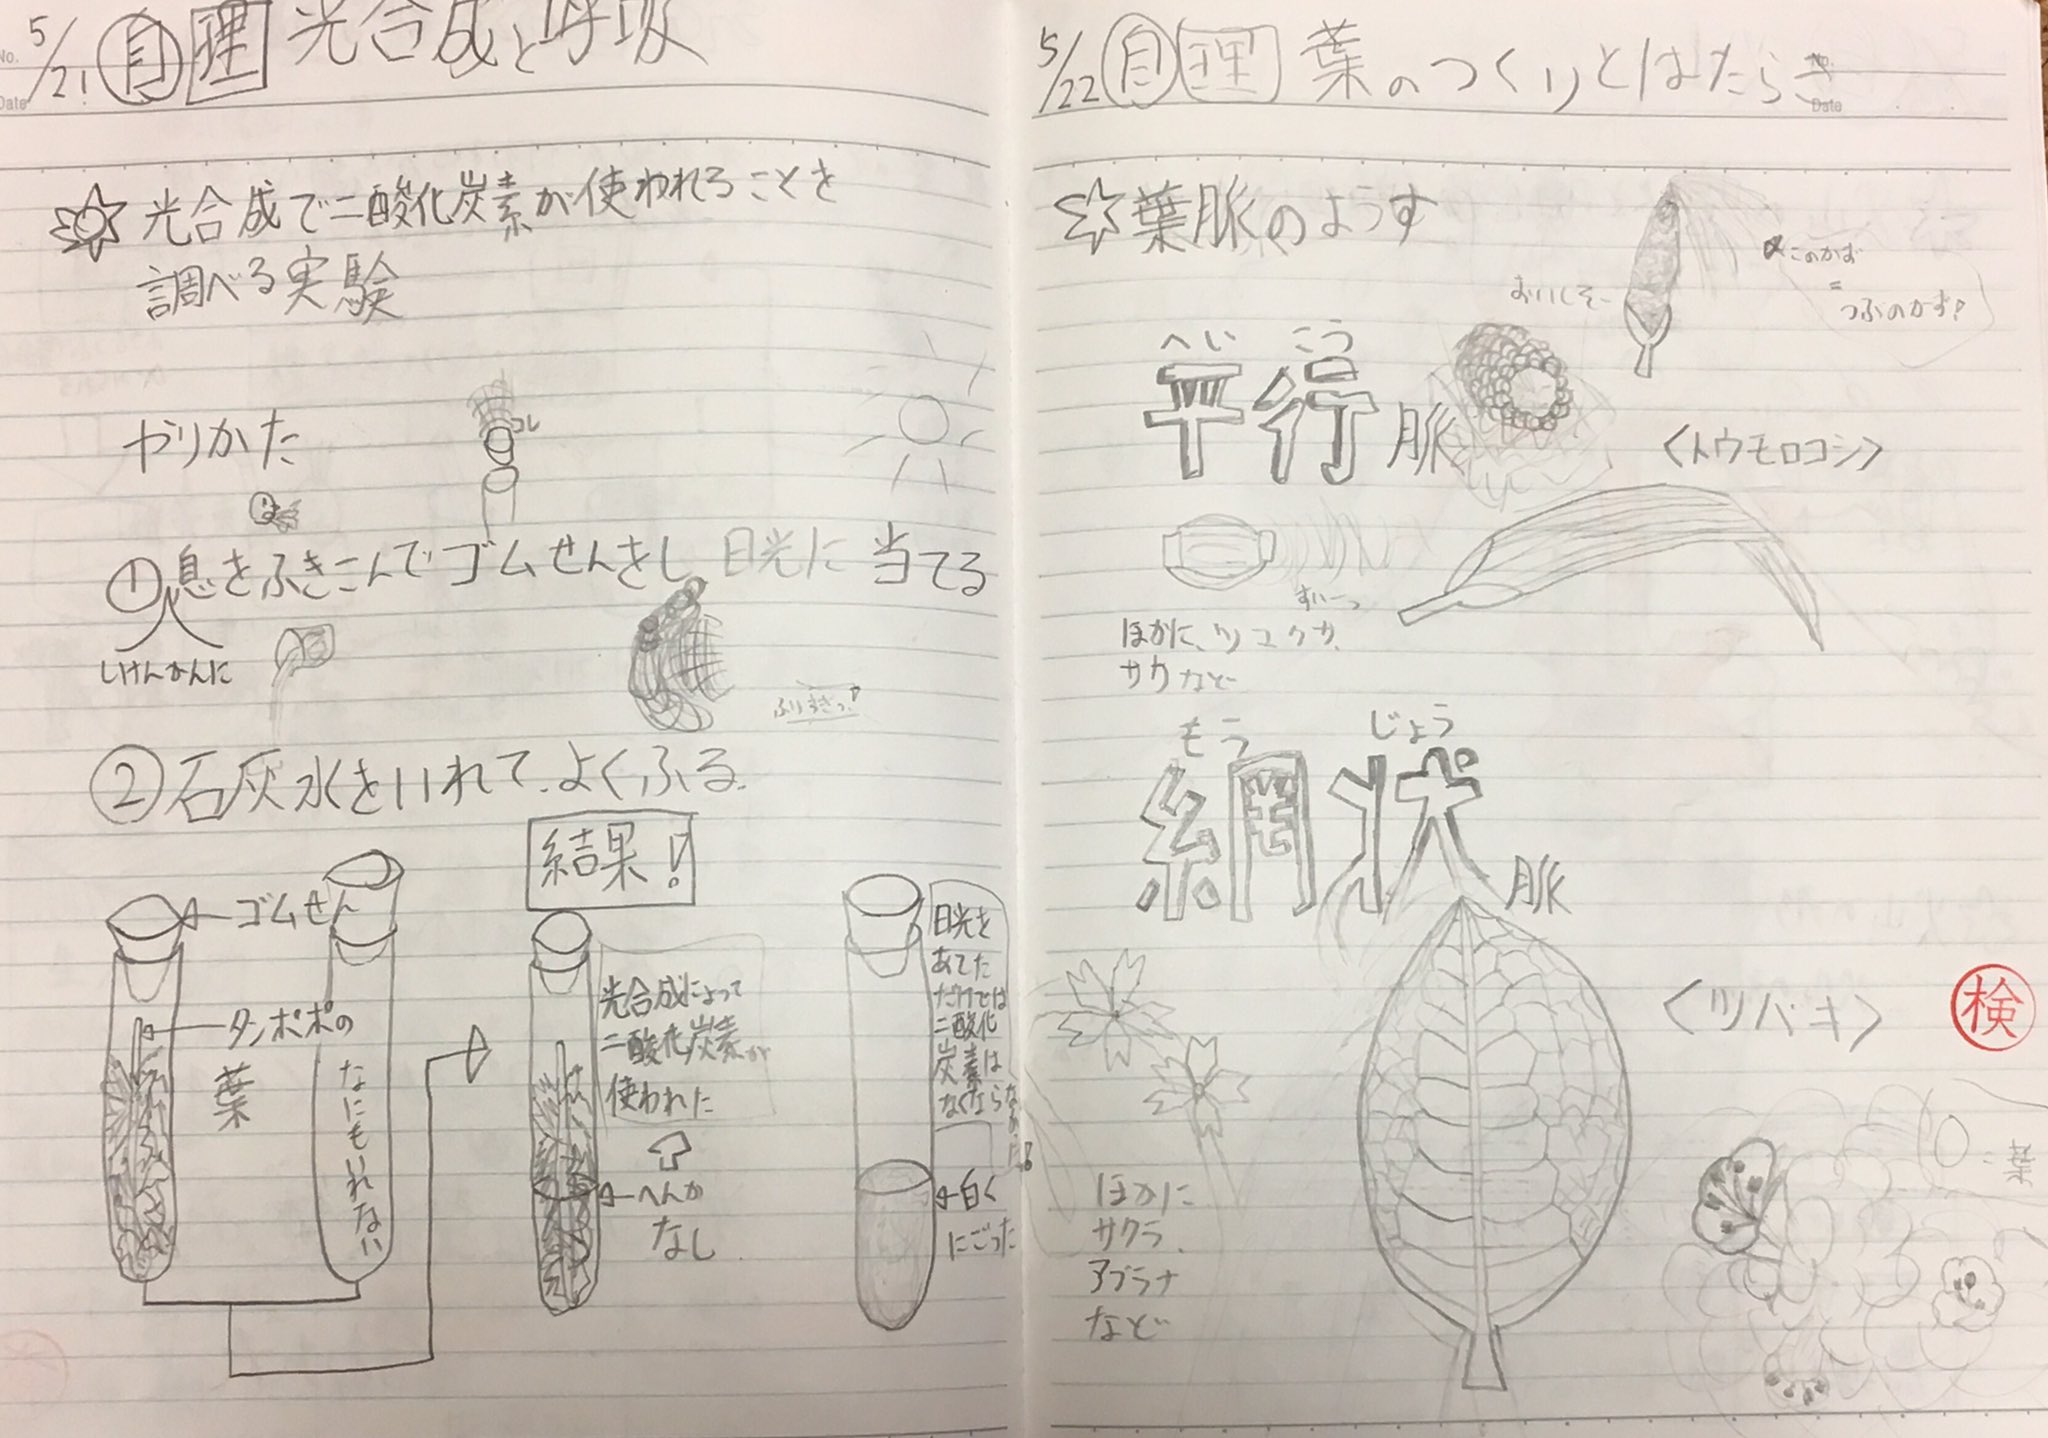 No.
Date
5/21 自 理 光合成と呼吸
光合成で二酸化炭素が使われることを
調べる実験
やりかた
コレ
①息をふきこんでゴムせんをし 日光に 当てる
しけんかんに
ふりすぎっ!
②石灰水をいれて、よくふる。
結果!
ゴムせん
タンポポの
葉
なにもいれない
光合成によって
二酸化炭素が
使われた
へんか
なし
日光を
あてた
だけでは
二酸化
炭素は
なくならない
白く
にごった
No.
Date
5/22 自 理 葉のつくりとはたらき
葉脈のようす
このかず
=
つぶのかず!
おいしそー
へい こう
平行脈
<トウモロコシ>
すいーっ
ほかに、ツユクサ、
ササ など
もう じょう
網状脈
<ツバキ>
検
ほかに
サクラ、
アブラナ
など
○=葉